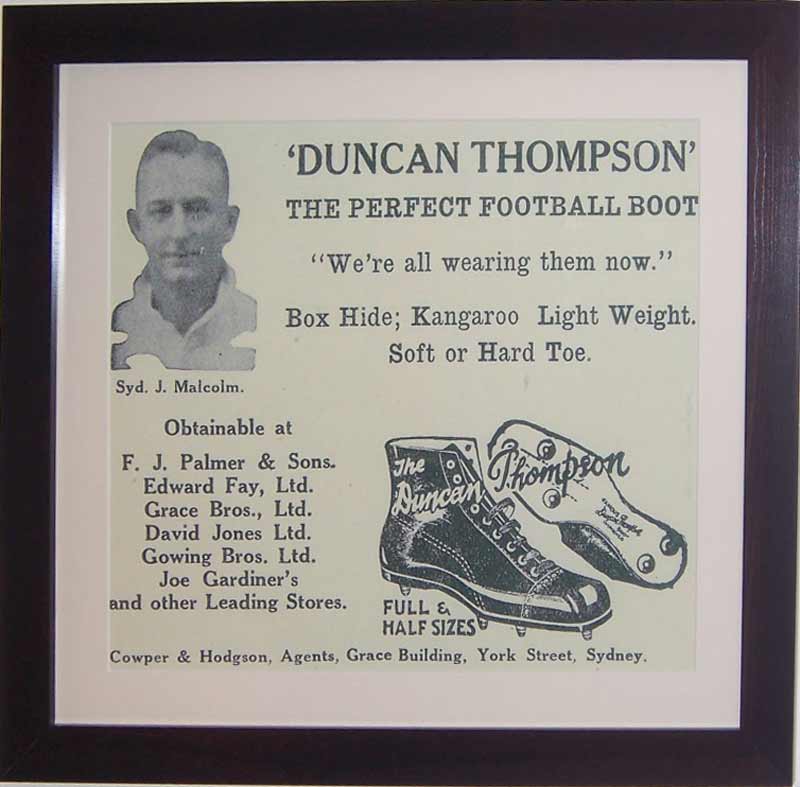 'DUNCAN THOMPSON'
THE PERFECT FOOTBALL BOOT
"We're all wearing them now."
Box Hide; Kangaroo Light Weight.
Soft or Hard Toe.
Syd. J. Malcolm.
Obtainable at
F. J. Palmer & Sons.
Edward Fay, Ltd.
Grace Bros., Ltd.
David Jones Ltd.
Gowing Bros. Ltd.
Joe Gardiner's
and other Leading Stores.
The
Duncan Thompson
FULL &
HALF SIZES
Cowper & Hodgson, Agents, Grace Building, York Street, Sydney.